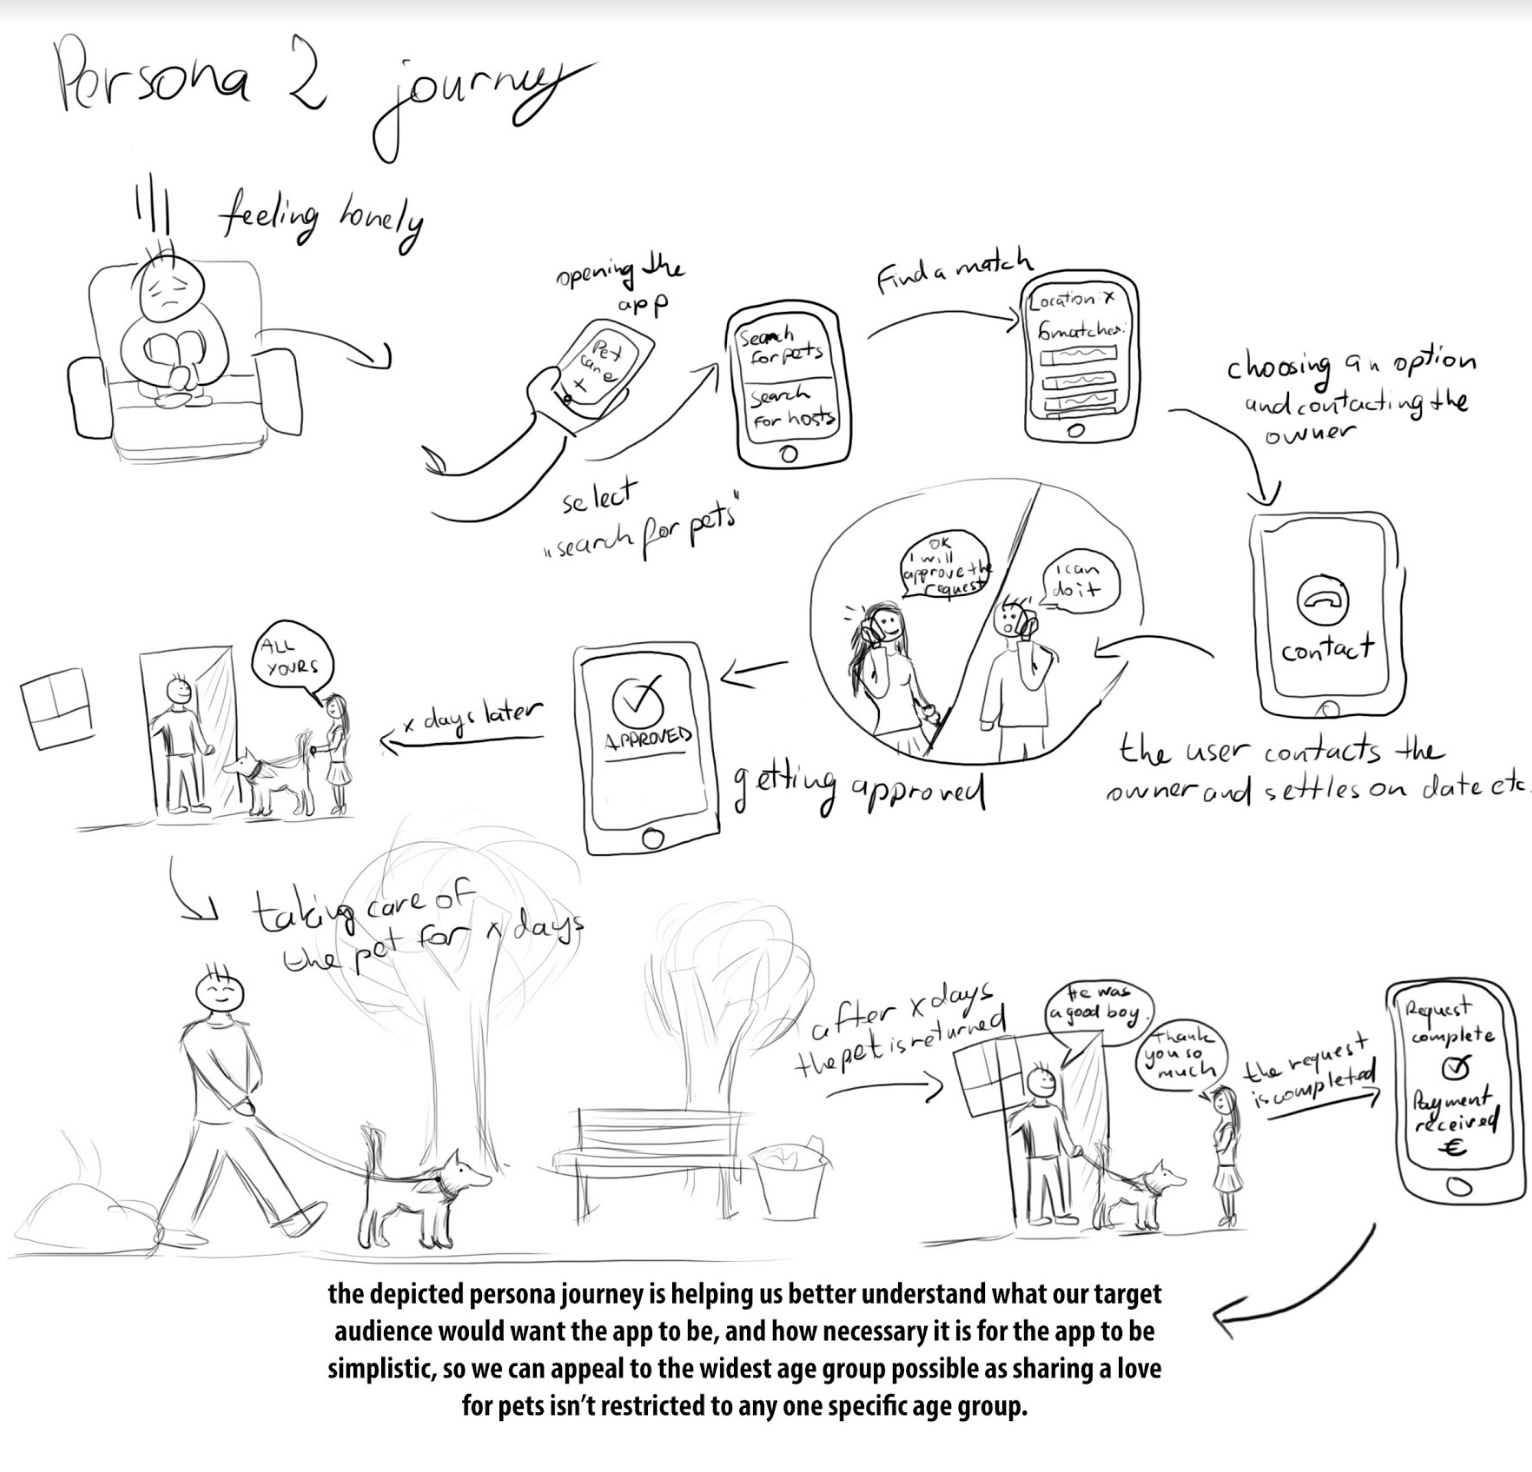 Persona 2 journey
feeling lonely
opening the
app
Pet
care
+
select
"search for pets"
Search
for pets
Search
for hosts
Find a match
Location: x
6 matches:
choosing an option
and contacting the
owner
contact
the user contacts the
owner and settles on date etc.
OK
I will
approve the
request
I can
do it
getting approved
APPROVED
x days later
ALL
YOURS
taking care of
the pet for x days
after x days
the pet is returned
He was
a good boy.
Thank
you so
much
the request
is completed
Request
complete
Payment
received
€
the depicted persona journey is helping us better understand what our target
audience would want the app to be, and how necessary it is for the app to be
simplistic, so we can appeal to the widest age group possible as sharing a love
for pets isn't restricted to any one specific age group.